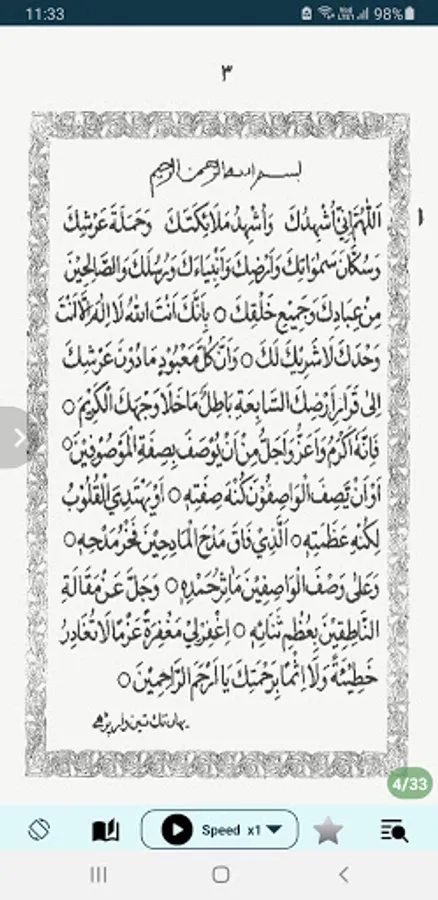 11:33
98%
٣
بسم الله الرحمن الرحيم
اَللّٰهُمَّ اِنِّيْ اُشْهِدُكَ وَاُشْهِدُ مَلَائِكَتَكَ وَحَمَلَةَ عَرْشِكَ
١
وَسُكَّانَ سَمٰوَاتِكَ وَاَرْضِكَ وَاَنْبِيَاءَكَ وَرُسُلَكَ وَالصَّالِحِيْنَ
مِنْ عِبَادِكَ وَجَمِيْعِ خَلْقِكَ ○ بِاَنَّكَ اَنْتَ اللهُ لَا اِلٰهَ اِلَّا اَنْتَ
وَحْدَكَ لَا شَرِيْكَ لَكَ ○ وَاَنَّ كُلَّ مَعْبُوْدٍ مَا دُوْنَ عَرْشِكَ
اِلٰى قَرَارِ اَرْضِكَ السَّابِعَةِ بَاطِلٌ مَا خَلَا وَجْهَكَ الْكَرِيْمَ ○
فَاِنَّهُ اَكْرَمُ وَاَعَزُّ وَاَجَلُّ مِنْ اَنْ يُوْصَفَ بِصِفَةِ الْمَوْصُوْفِيْنَ ○
اَوْ اَنْ يَّصِفَ الْوَاصِفُوْنَ كُنْهَ صِفَتِهِ ○ اَوْ يَهْتَدِيَ الْقُلُوْبُ
لِكُنْهِ عَظَمَتِهِ ○ اَلَّذِيْ فَاقَ مَدْحَ الْمَادِحِيْنَ فَخْرُ مَدْحِهِ ○
وَعَلٰى وَصْفَ الْوَاصِفِيْنَ مَاٰثِرُ حَمْدِهِ ○ وَجَلَّ عَنْ مَقَالَةِ
النَّاطِقِيْنَ بِعُظْمِ ثَنَائِهِ ○ اِغْفِرْلِيْ مَغْفِرَةً عَزْمًا لَا تُغَادِرُ
خَطِيْئَةً وَلَا اِثْمًا بِرَحْمَتِكَ يَا اَرْحَمَ الرَّاحِمِيْنَ ○
يهاں تك تين وار پڑهے
4/33
Speed x1